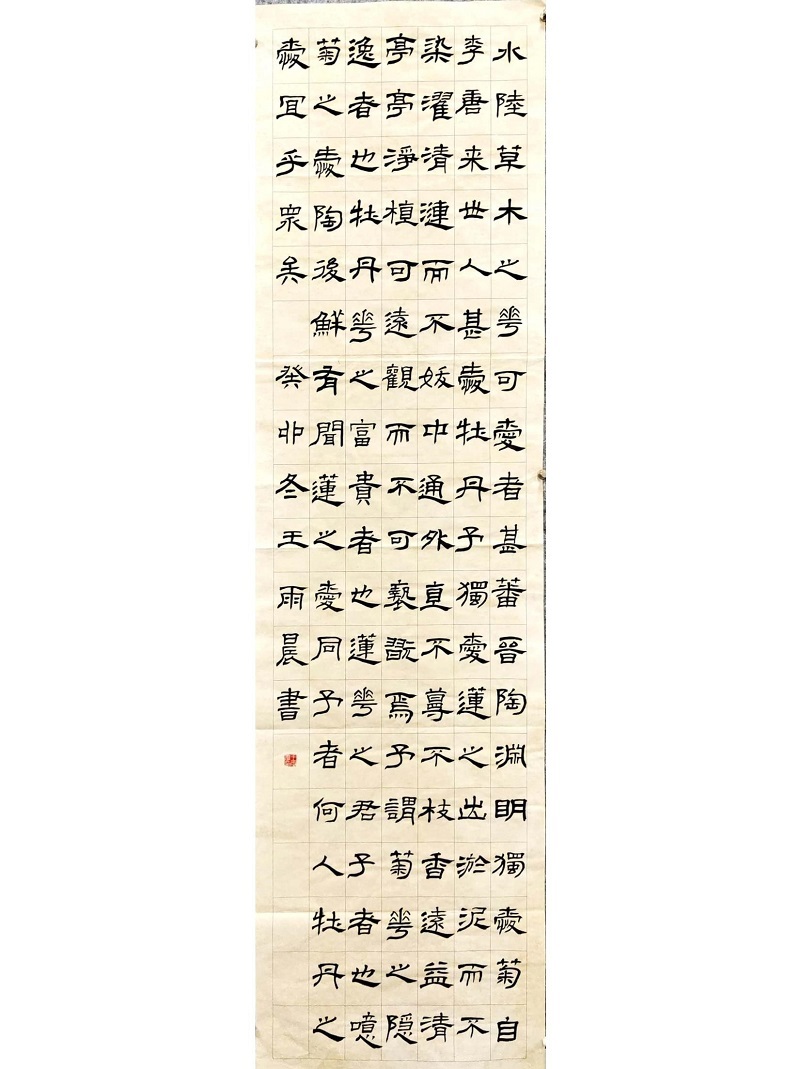 水陸草木之華可愛者甚蕃晉陶淵明獨愛菊自
李唐来世人甚愛牡丹予獨愛蓮之出淤泥而不
染濯清漣而不妖中通外直不蔓不枝香遠益清
亭亭淨植可遠觀而不可褻翫焉予謂菊華之隱
逸者也牡丹華之富貴者也蓮華之君子者也噫
菊之愛陶後鮮有聞蓮之愛同予者何人牡丹之
愛宜乎眾矣 癸卯冬王雨晨書